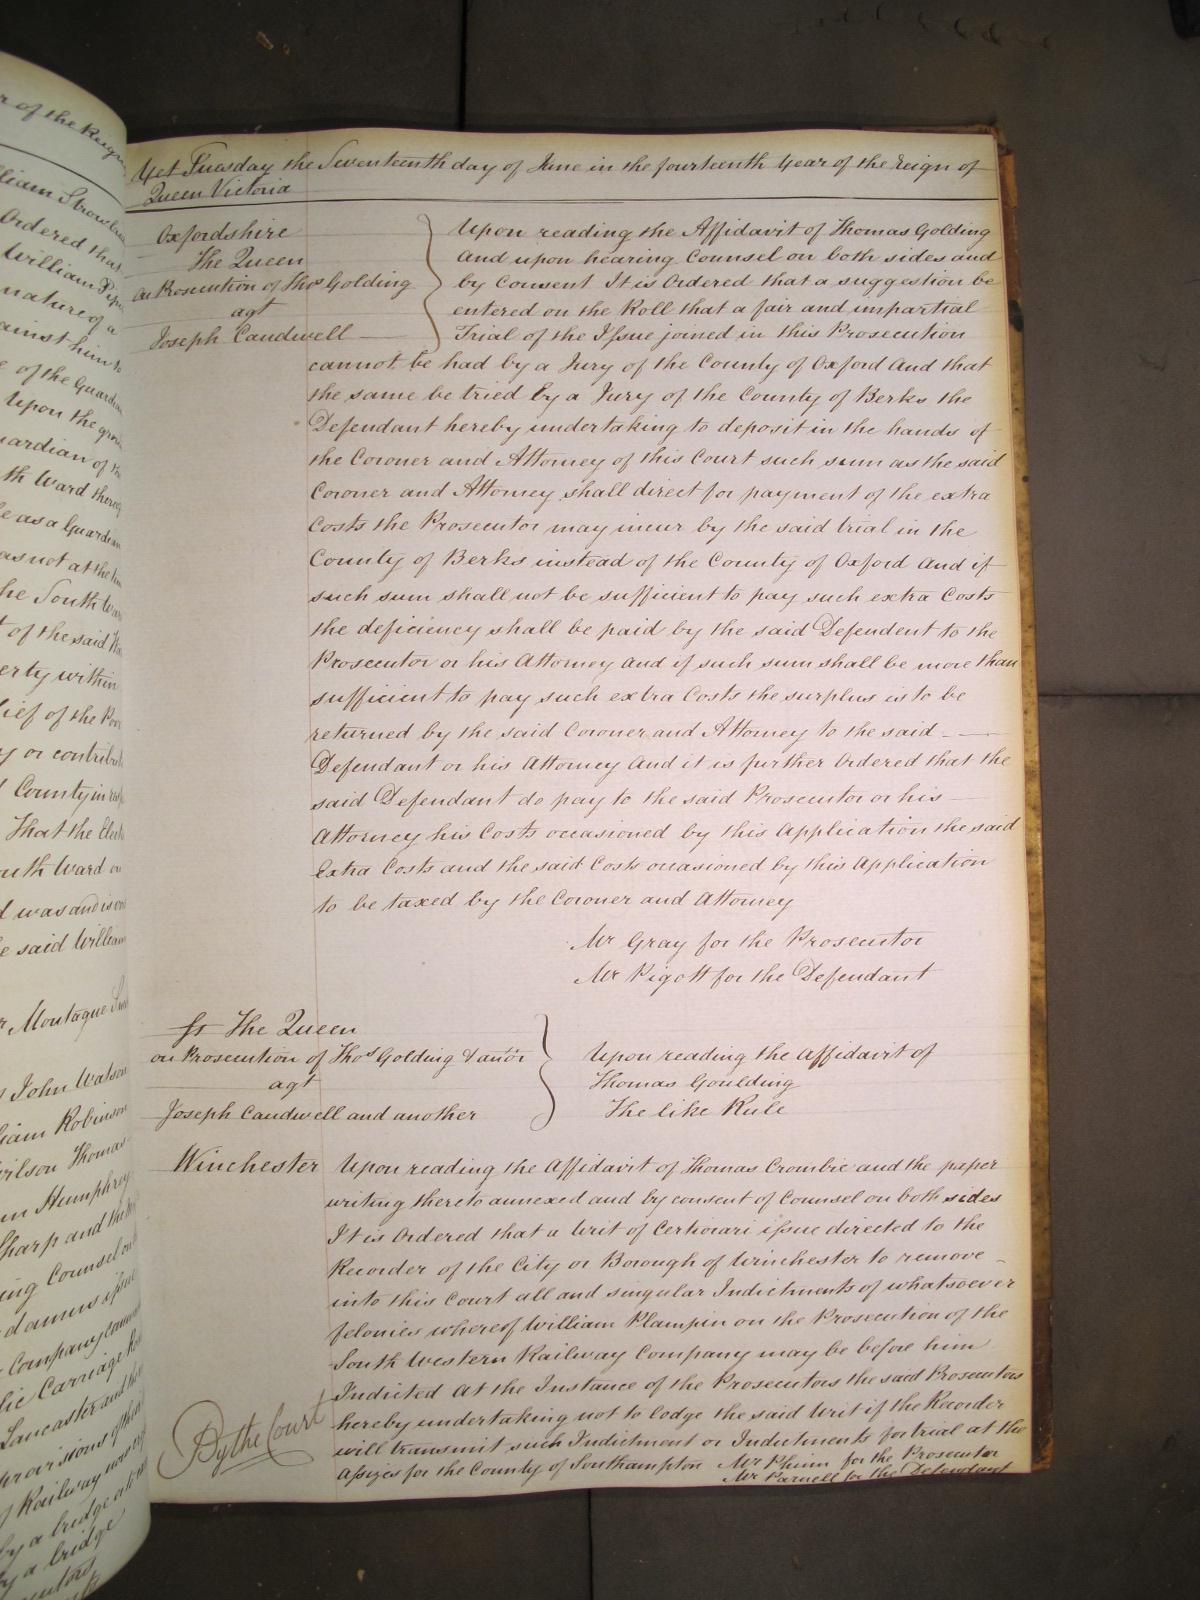 r of the Reign
liam Strowbri
Ordered that
William
nature of a
ainst him to
of the Guardi
Upon the grou
uardian of
th Ward thereof
e as a Guardian
as not at the
he South Wa
t of the said
erty within
lief of the Poor
y or contribut
County in
That the Elect
outh Ward
d was and is
e said William
r Montague
John Watson
liam Robinson
Wilson Thomas
m Humphrey
Sharp and the
ing Counsel on
damus issue
Company comm
lic Carriage
Lancaster and
provisions of the
Railway
by a bridge
by a bridge
Yet Tuesday the Seventeenth day of June in the fourteenth Year of the Reign of
Queen Victoria
Oxfordshire
The Queen
on Prosecution of Thos Golding
agt
Joseph Caudwell
Upon reading the Affidavit of Thomas Golding
and upon hearing Counsel on both sides and
by Consent It is Ordered that a suggestion be
entered on the Roll that a fair and impartial
Trial of the Issue joined in this Prosecution
cannot be had by a Jury of the County of Oxford And that
the same be tried by a Jury of the County of Berks the
Defendant hereby undertaking to deposit in the hands of
the Coroner and Attorney of this Court such sum as the said
Coroner and Attorney shall direct for payment of the extra
Costs the Prosecutor may incur by the said trial in the
County of Berks instead of the County of Oxford And if
such sum shall not be sufficient to pay such extra Costs
the deficiency shall be paid by the said Defendent to the
Prosecutor or his Attorney And if such sum shall be more than
sufficient to pay such extra Costs the surplus is to be
returned by the said Coroner and Attorney to the said
Defendant or his Attorney And it is further Ordered that the
said Defendant do pay to the said Prosecutor or his
Attorney his Costs occasioned by this Application the said
Extra Costs and the said Costs occasioned by this Application
to be taxed by the Coroner and Attorney
Mr Gray for the Prosecutor
Mr Pigott for the Defendant
The Queen
on Prosecution of Thos Golding & anor
agt
Joseph Caudwell and another
Upon reading the Affidavit of
Thomas Goulding
The like Rule
Winchester
Upon reading the Affidavit of Thomas Crombie and the paper
writing thereto annexed and by consent of Counsel on both sides
It is Ordered that a Writ of Certiorari issue directed to the
Recorder of the City or Borough of Winchester to remove
into this Court all and singular Indictments of whatsoever
felonies whereof William Plampin on the Prosecution of the
South Western Railway Company may be before him
Indicted At the Instance of the Prosecutors the said Prosecutors
hereby undertaking not to lodge the said Writ if the Recorder
will transmit such Indictment or Indictments for trial at the
Assizes for the County of Southampton Mr Phinn for the Prosecutor
Mr Parnell for the Defendant
By the Court